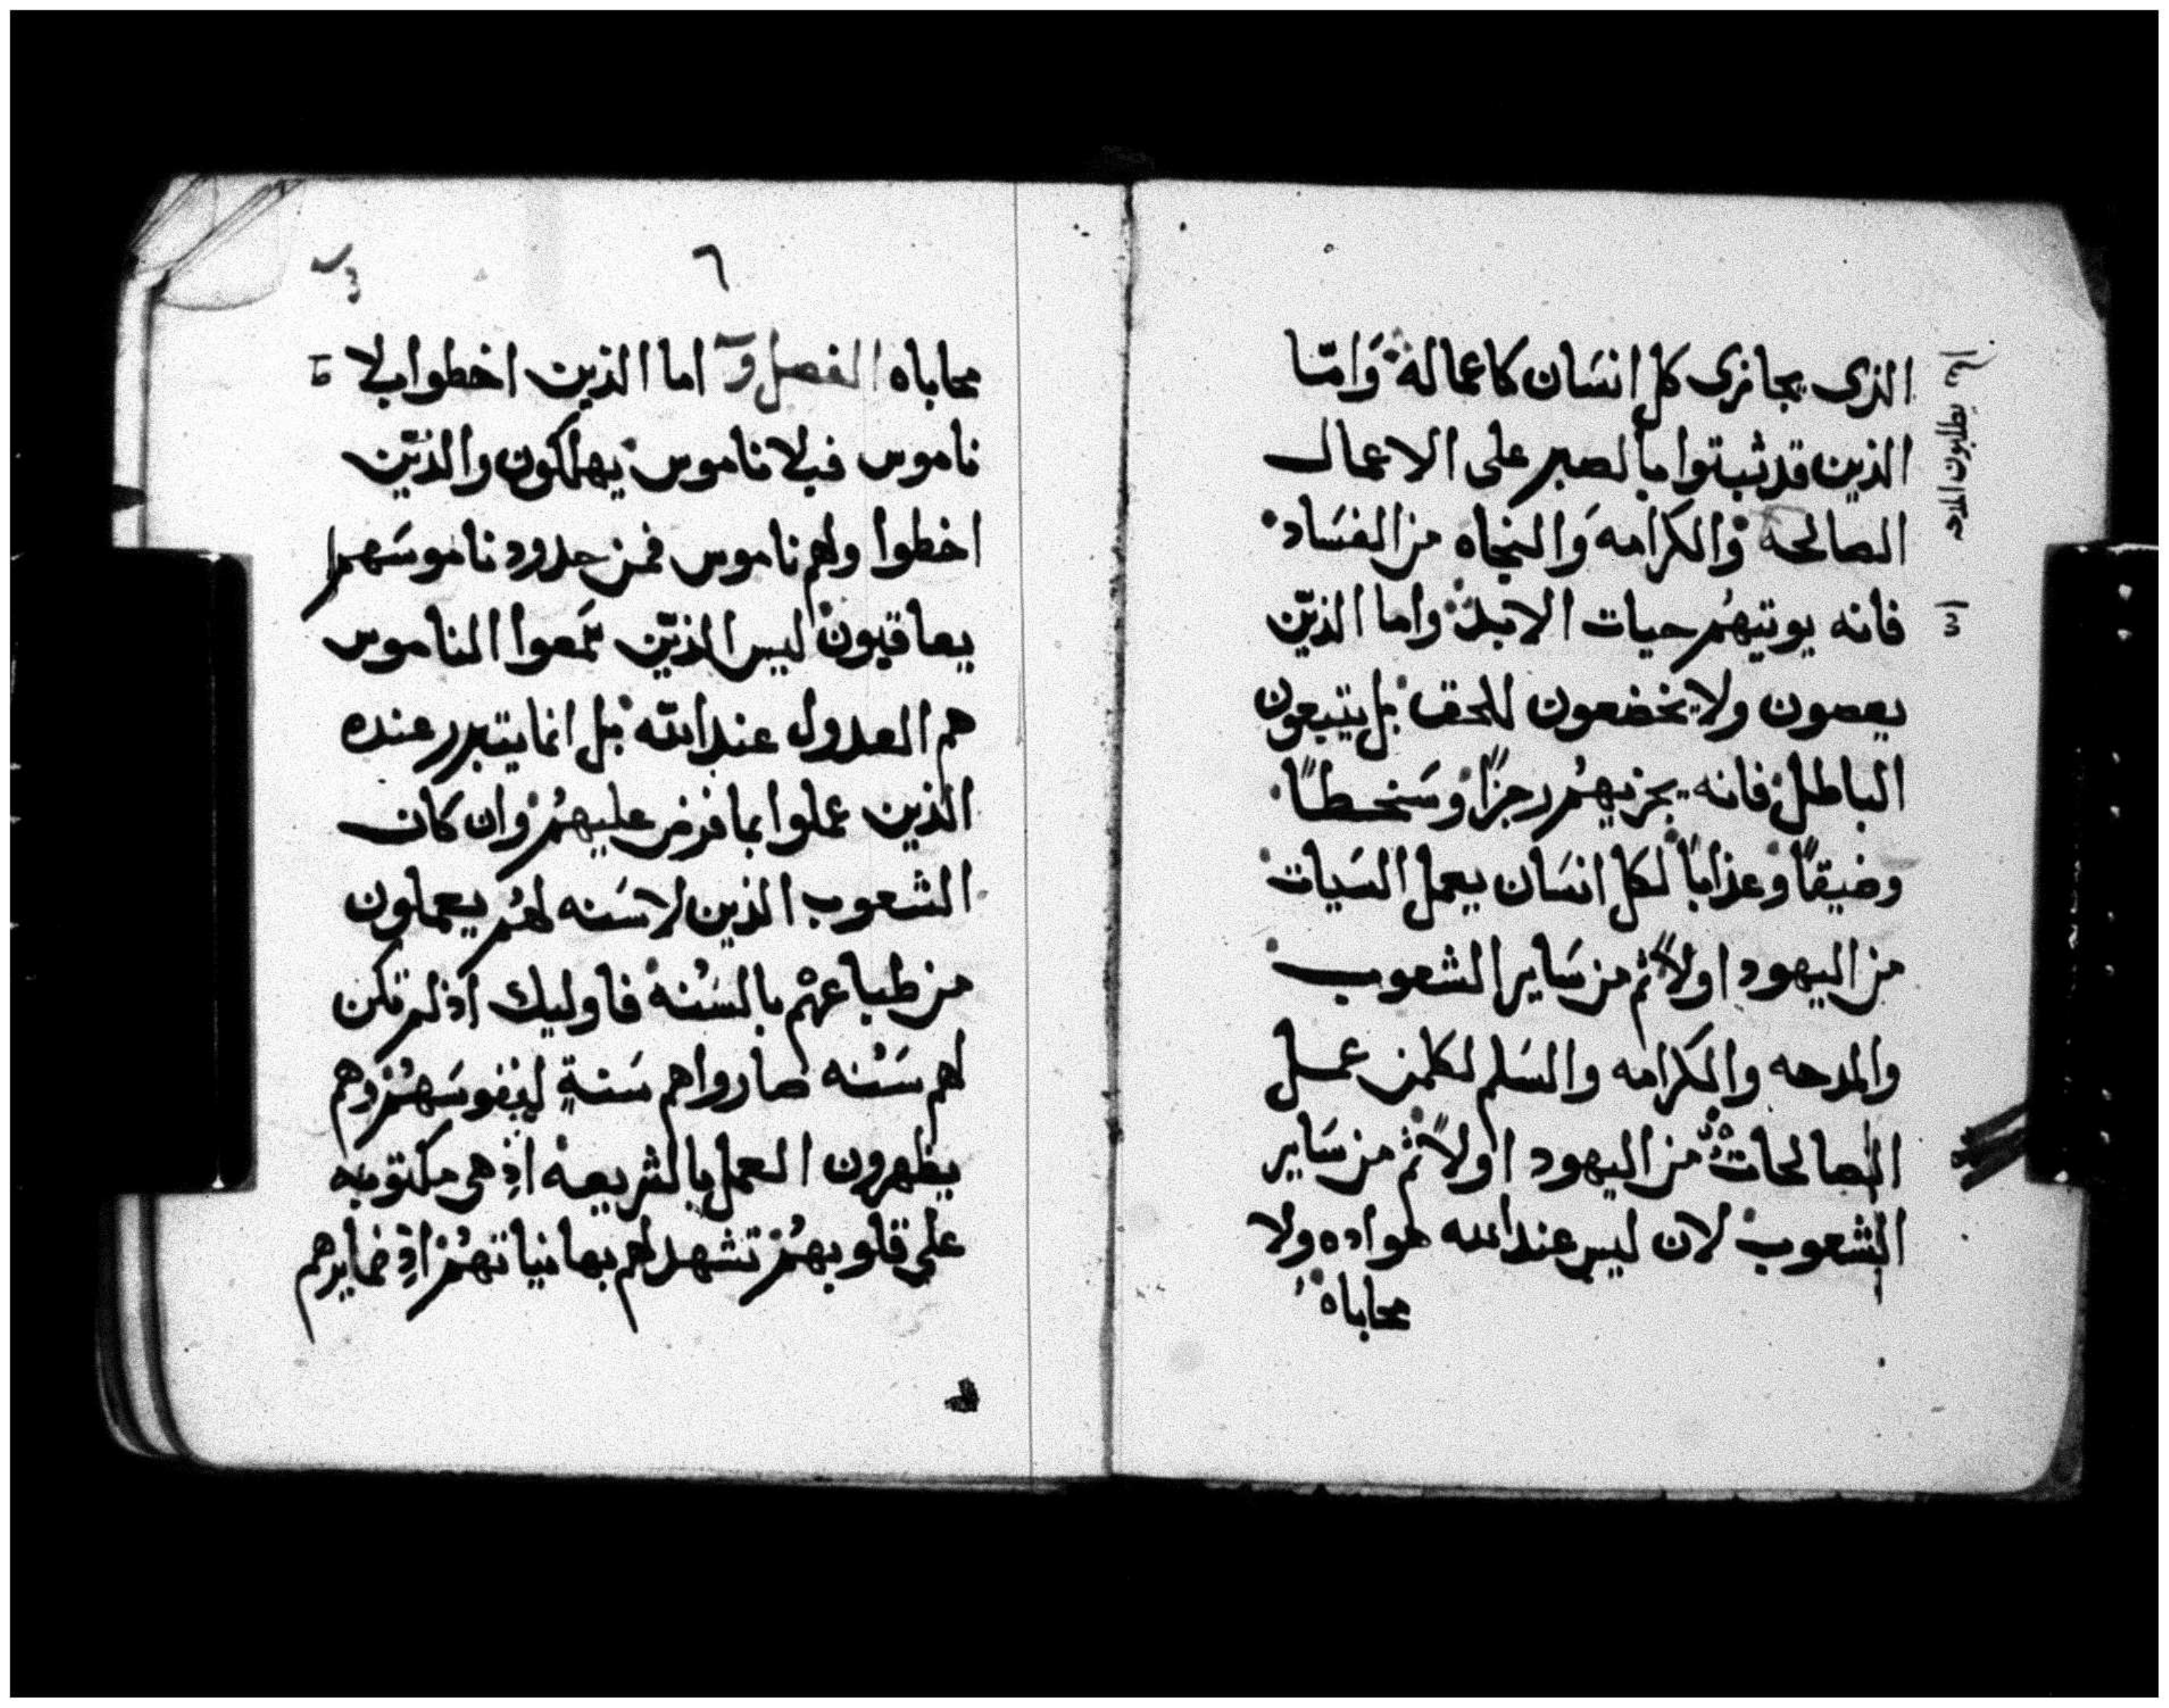 الذى يجازى كل انسَان كاعماله وَامّا
الذين قد ثبتوا بالصبر على الاعمال
الصالحة والكرامه وَالنجاه من الفسَاد
فانه يوتيهُم حيات الابد واما الذيّن
يعصون ولا يخضعون للحق بل يتبعون
الباطل فانه يجزيهُم رجزًا وسَخطًا
وضيقًا وعذابًا لكل انسَان يعمل السَيات
من اليهود اولاً ثم من سَاير الشعوب
والمدحه والكرامه والسَلم لكلمن عمل
الصالحات من اليهود اولاً ثم من سَاير
الشعوب لان ليس عند الله هواده ولا
محاباه
يطلبون المدحه
٦
محاباه الفصل و اما الذين اخطوا بلا
ناموس فبلا ناموس يهلكون والذيّن
اخطوا ولهم ناموس فمن حدود ناموسَهم
يعاقبون ليس الذيّن سَمعوا الناموس
هم العدول عند الله بل انما يتبرر عنده
الذين عملوا بما فرض عليهُم وان كان
الشعوب الذين لا سَنه لهُم يعملون
من طباعهْم بالسَنه فاوليك اذ لم تكن
لهم سَنه صاروا هم سَنةٍ لنفوسَهُم وهم
يظهرون العمل بالشريعه اذ هى مكتوبه
على قلوبهُم تشهد لهم بها نياتهُم اذ ضمايرهم